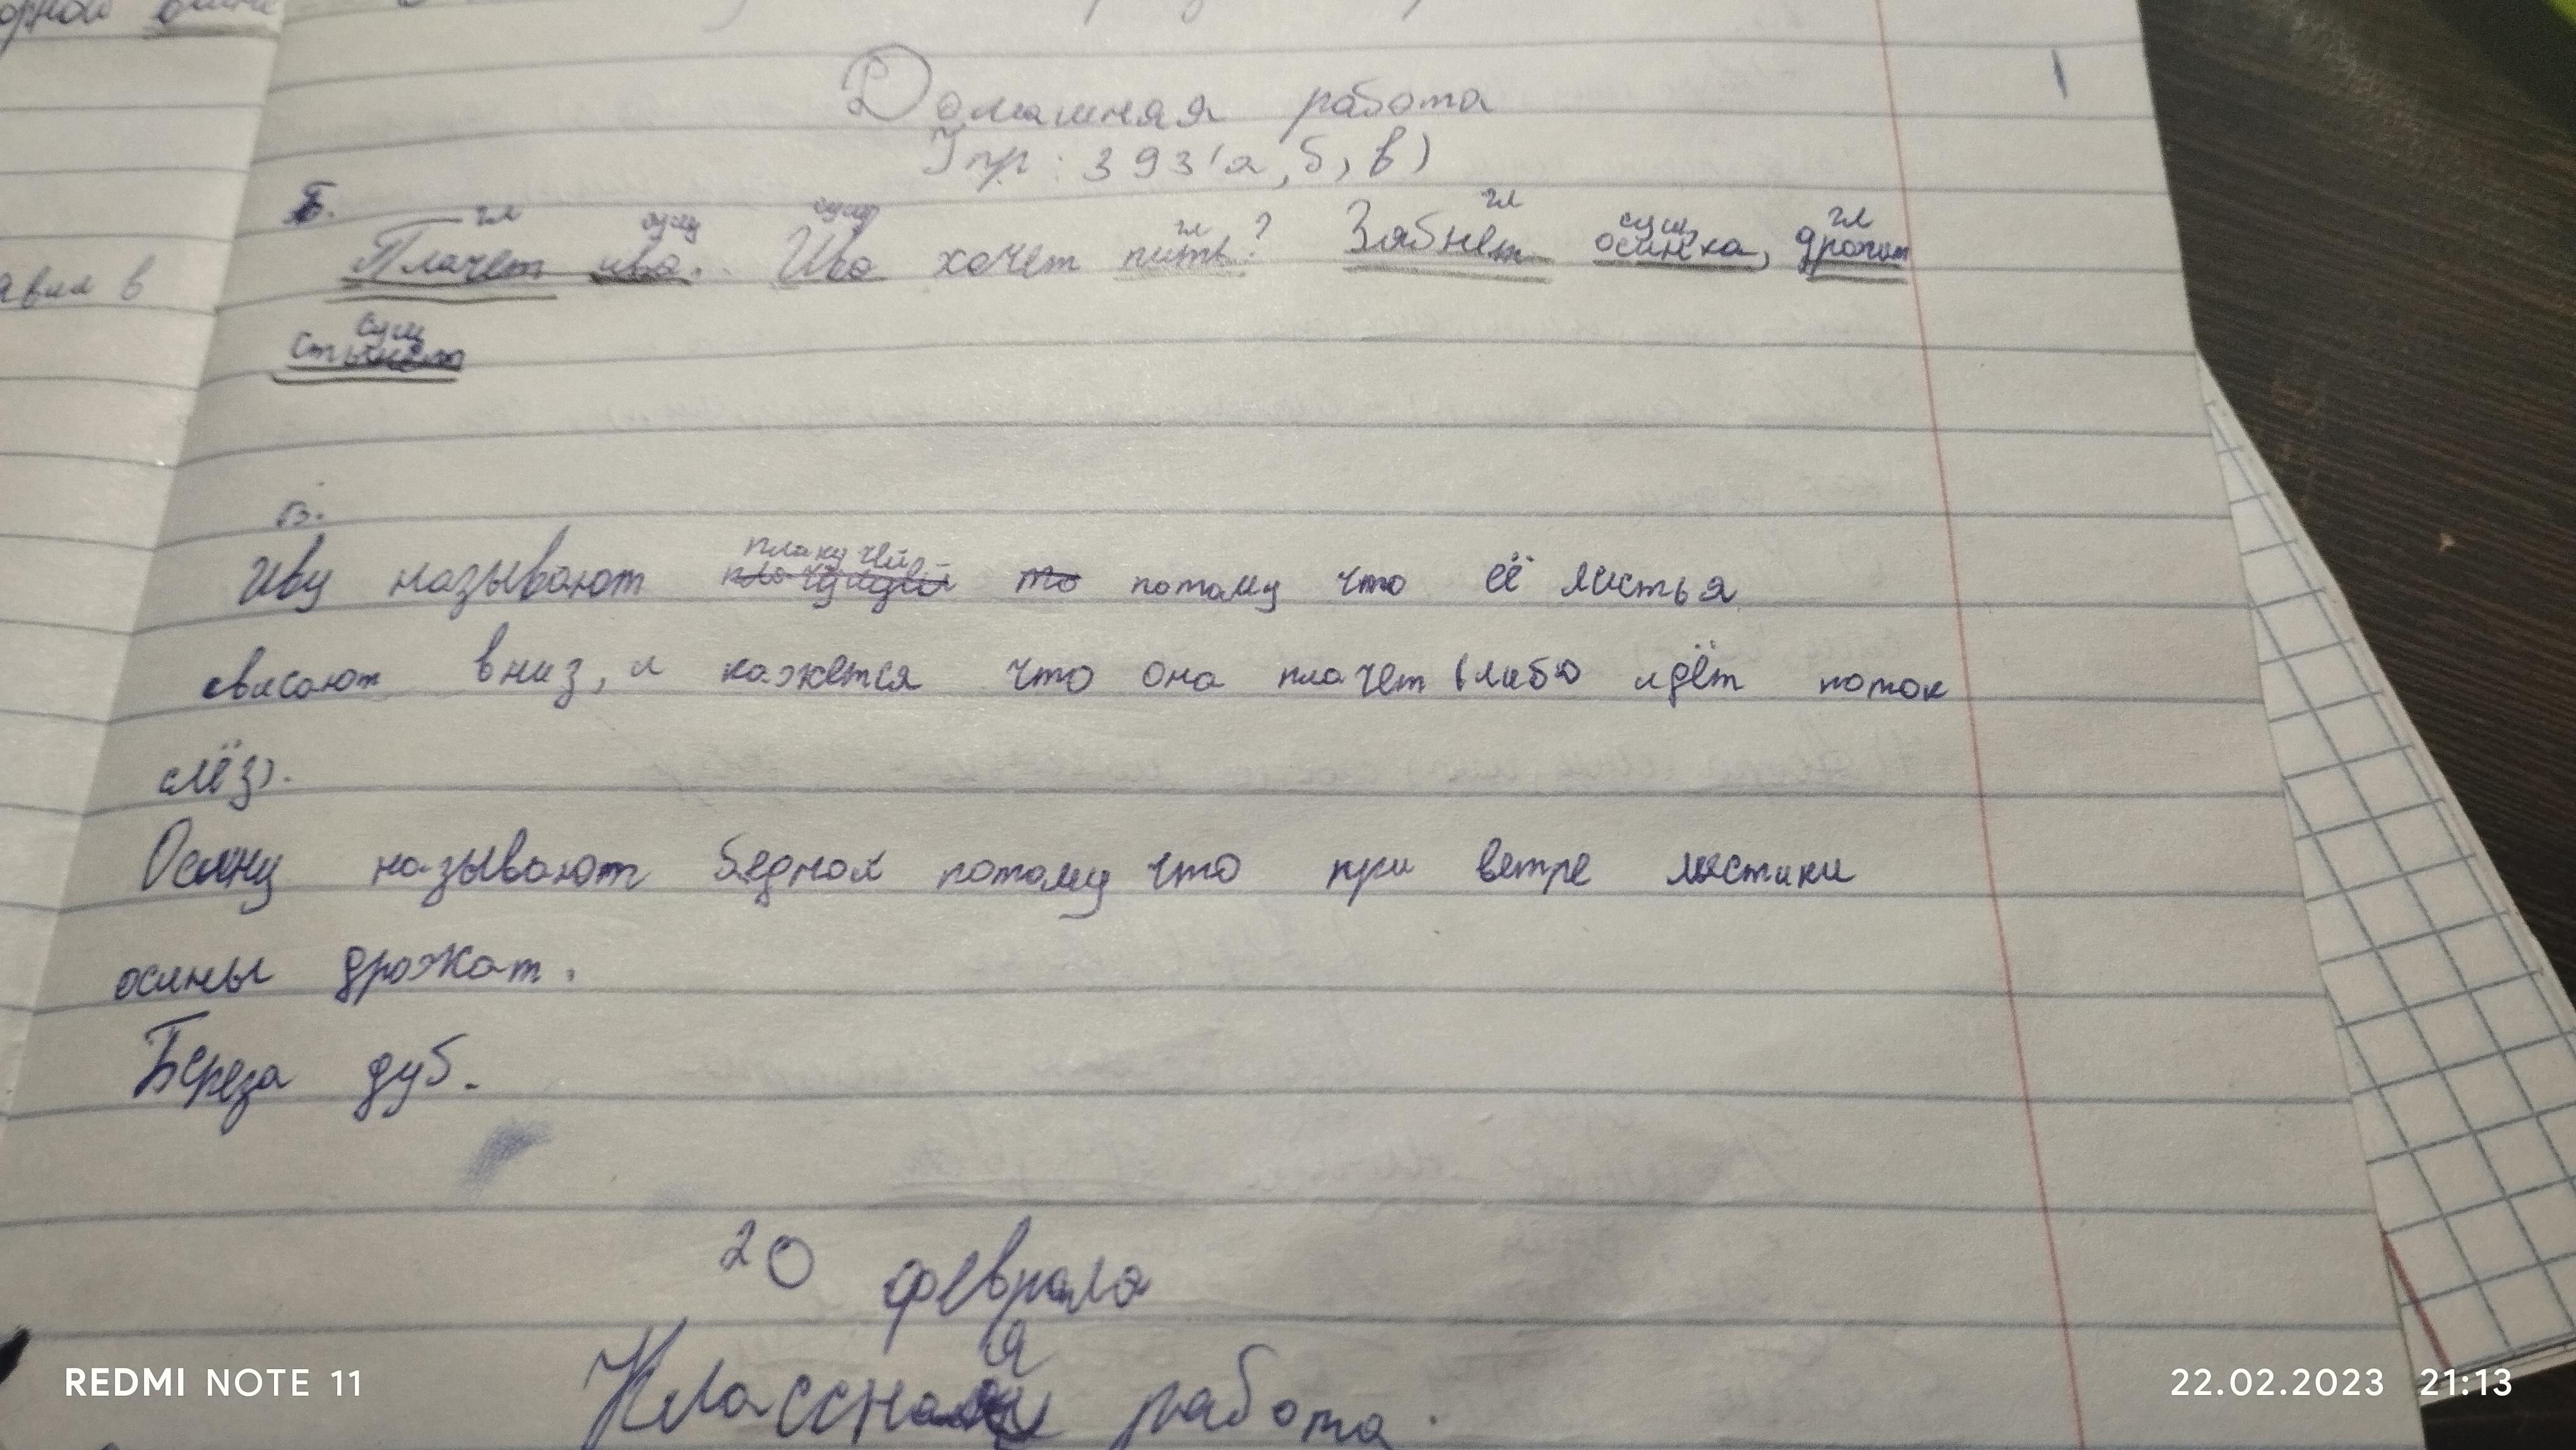 авил в
Домашняя работа
Упр: 393(а, б, в)
Б.
гл сущ сущ гл гл сущ гл
Плачет ива. Ива хочет пить? Зябнет осинка, дрожат
сущ
в.
плакучей
Иву называют то потому что её листья
свисают вниз, и кажется что она плачет (либо идёт поток
слёз).
Осину называют бедной потому что при ветре листики
осины дрожат.
Береза дуб.
20 февраля
Классная работа.
REDMI NOTE 11
22.02.2023 21:13